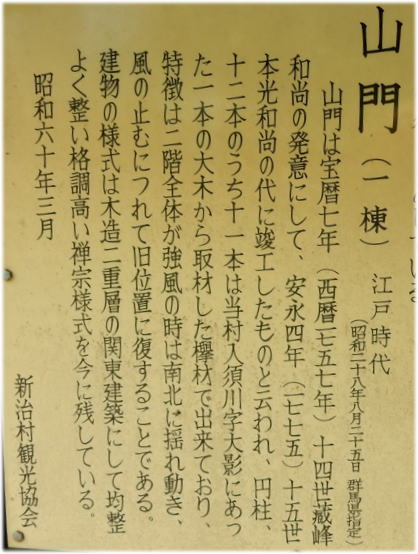 山門（一棟）　江戸時代
（昭和二十八年八月二十五日 群馬県指定）
山門は宝暦七年（西暦一七五七年）十四世蔵峰
和尚の発意にして、安永四年（一七七五）十五世
本光和尚の代に竣工したものと云われ、円柱、
十二本のうち十一本は当村入須川字大影にあっ
た一本の大木から取材した欅材で出来ており、
特徴は二階全体が強風の時は南北に揺れ動き、
風の止むにつれて旧位置に復することである。
建物の様式は木造二重層の関東建築にして均整
よく整い格調高い禅宗様式を今に残している。
昭和六十年三月
新治村観光協会